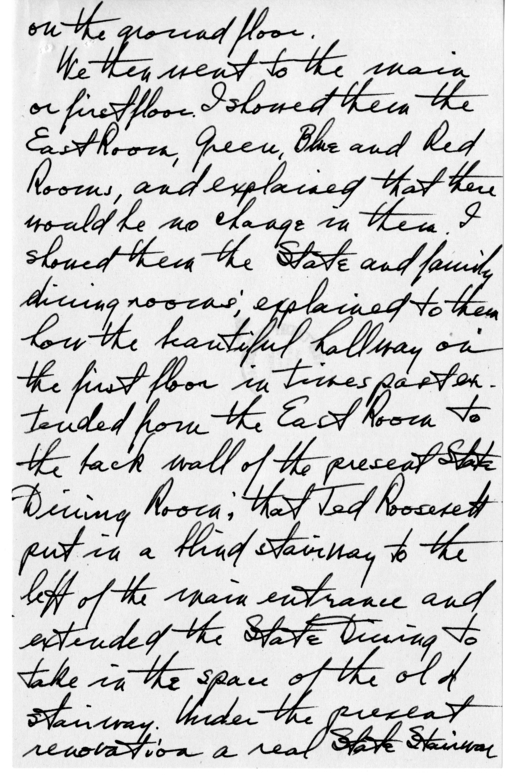 on the ground floor.
We then went to the main
or first floor. I showed them the
East Room, Green, Blue and Red
Rooms, and explained that there
would be no change in them. I
showed them the State and family
dining rooms; explained to them
how the beautiful hallway on
the first floor in times past ex-
tended from the East Room to
the back wall of the present State
Dining Room; that Ted Roosevelt
put in a blind stairway to the
left of the main entrance and
extended the State Dining to
take in the space of the old
stairway. Under the present
renovation a real State Stairway